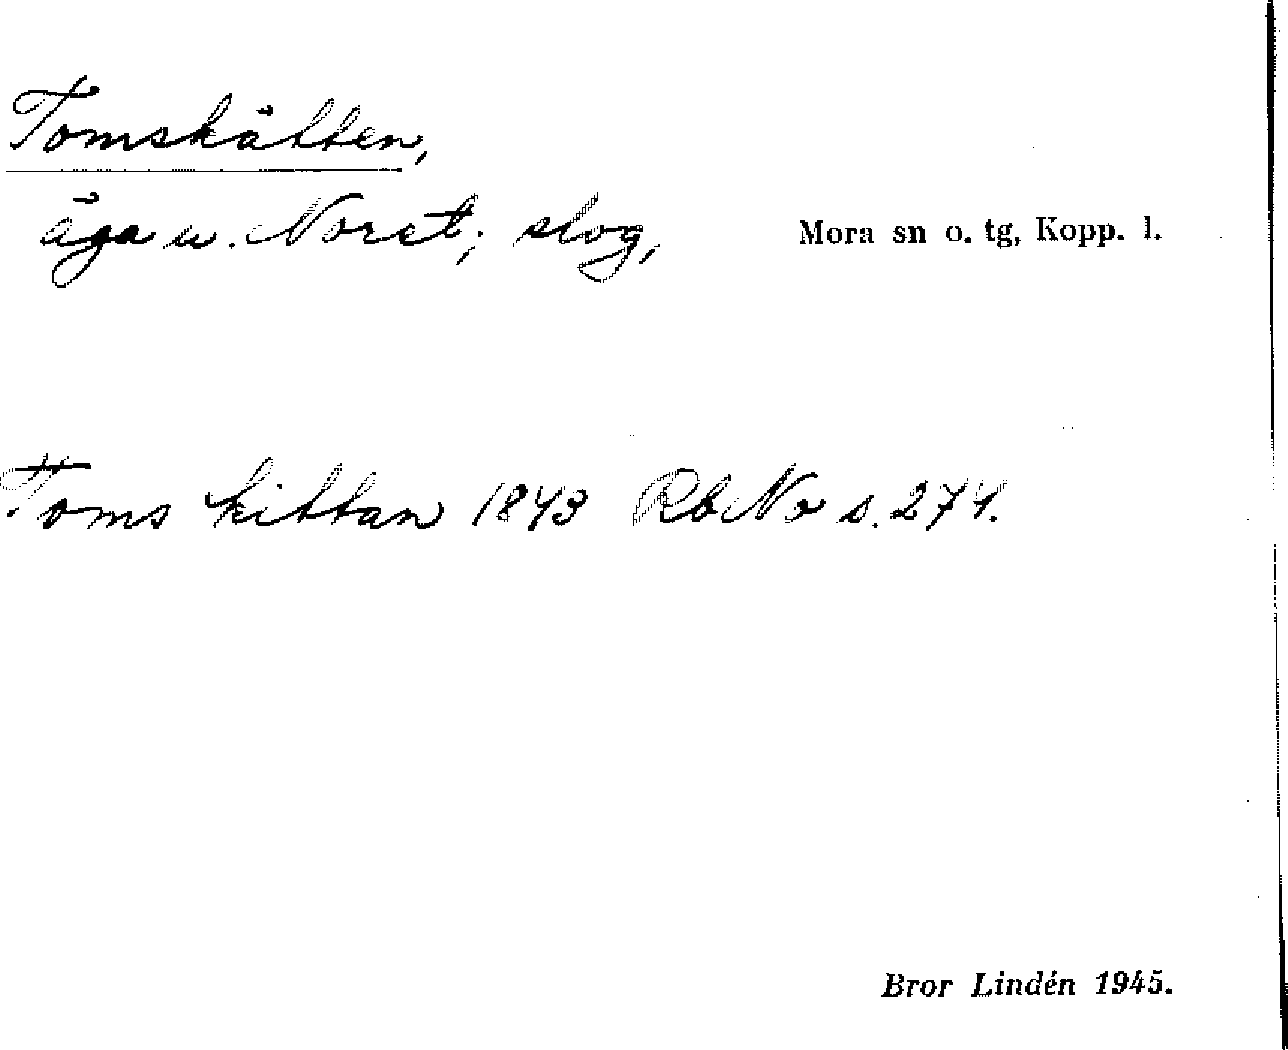 Tomskätten,
äga u. Noret; slog,
Mora sn o. tg, Kopp. l.
Toms kittan 1843 Rb No s. 274.
Bror Lindén 1945.